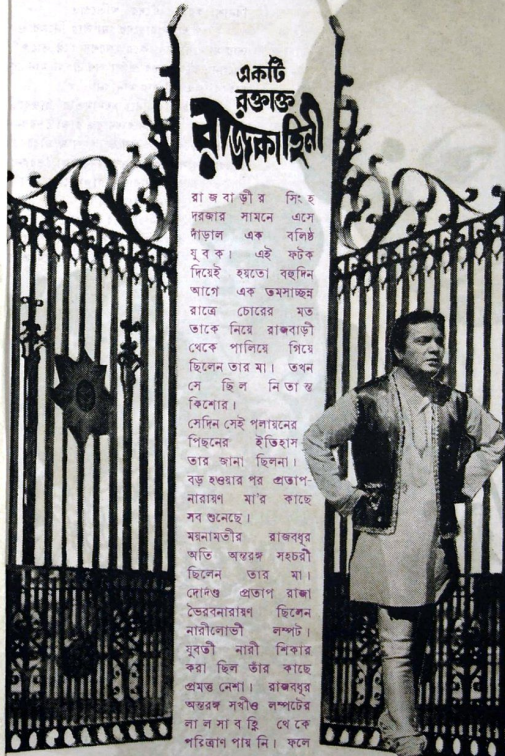 একটি
রক্তাক্ত
রাজকাহিনী
রাজবাড়ীর সিংহ
দরজার সামনে এসে
দাঁড়াল এক বলিষ্ঠ
যুবক। এই ফটক
দিয়েই হয়তো বহুদিন
আগে এক তমসাচ্ছন্ন
রাত্রে চোরের মত
তাকে নিয়ে রাজবাড়ী
থেকে পালিয়ে গিয়ে
ছিলেন তার মা। তখন
সে ছিল নিতান্ত
কিশোর।
সেদিন সেই পলায়নের
পিছনের ইতিহাস
তার জানা ছিলনা।
বড় হওয়ার পর প্রতাপ-
নারায়ণ মা'র কাছে
সব শুনেছে।
ময়নামতীর রাজবধূর
অতি অন্তরঙ্গ সহচরী
ছিলেন তার মা।
দোর্দণ্ড প্রতাপ রাজা
ভৈরবনারায়ণ ছিলেন
নারীলোভী লম্পট।
যুবতী নারী শিকার
করা ছিল তাঁর কাছে
প্রমত্ত নেশা। রাজবধূর
অন্তরঙ্গ সখীও লম্পটের
লালসাবহ্নি থেকে
পরিত্রাণ পায় নি। ফলে